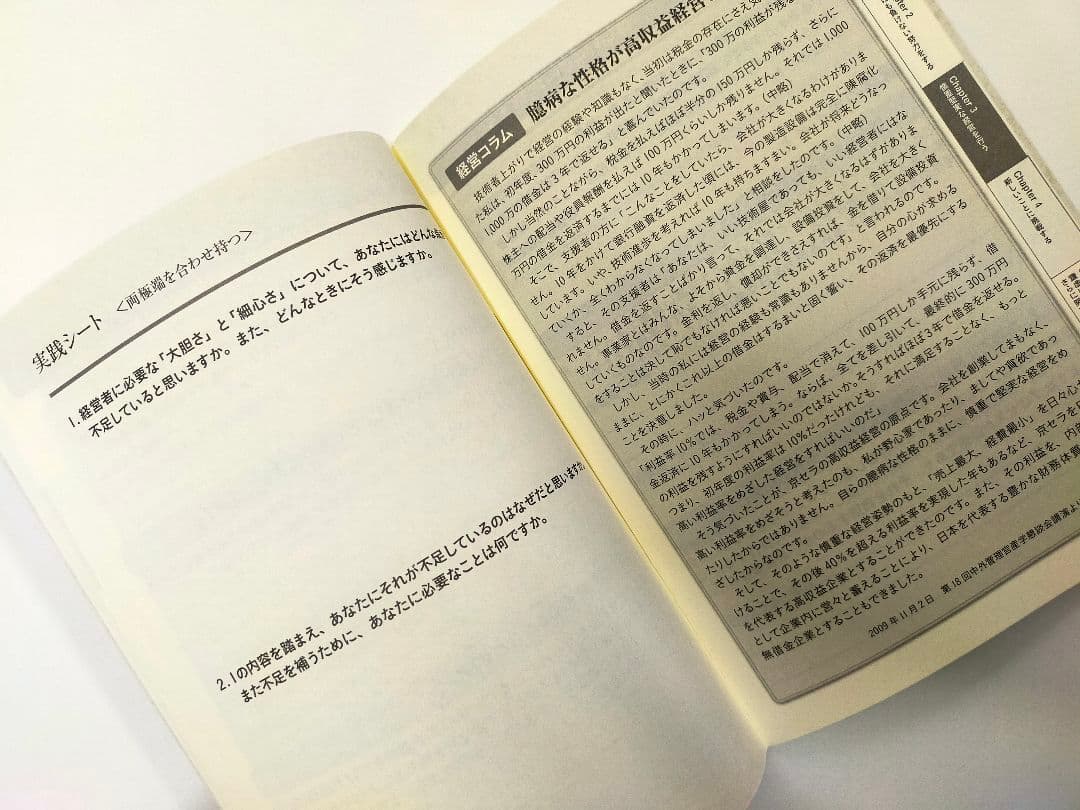 実践シート 〈両極端を合わせ持つ〉
1. 経営者に必要な「大胆さ」と「細心さ」について、あなたにはどんな
不足していると思いますか。また、どんなときにそう感じますか。
2. 1の内容を踏まえ、あなたにそれが不足しているのはなぜだと思いますか
また不足を補うために、あなたに必要なことは何ですか。
経営コラム 臆病な性格が高収益経営
技術者上がりで経営の経験や知識もなく、当初は税金の存在にさえ
た私は、初年度、300万円の利益が出たと聞いたときに、「300万の利益が残
1,000万の借金は3年で返せる」と喜んでいたのです。
しかし当然のことながら、税金を払えばほぼ半分の150万円しか残らず、さらに
株主への配当や役員報酬を払えば100万円くらいしか残りません。それでは1,000
万円の借金を返済するまでには10年もかかってしまいます。(中略)
そこで、支援者の方に「こんなことをしていたら、会社が大きくなるわけがありま
せん。10年をかけて銀行融資を返済した頃には、今の製造設備は完全に陳腐化
しています。いや、技術進歩を考えれば10年も持ちますまい。会社が将来どうなっ
ていくか、全くわからなくなってしまいました」と相談をしたのです。(中略)
すると、その支援者は「あなたは、いい技術屋であっても、いい経営者にはな
れません。借金を返すことばかり言って、それでは会社が大きくなるはずがありま
せん。事業家とはみんな、よそから資金を調達し、設備投資をして、会社を大きく
していくものなのです。金利を返し、償却ができさえすれば、金を借りて設備投資
をすることは決して恥でもなければ悪いことでもないのです」と言われるのです。
しかし、当時の私には経営の経験も常識もありませんから、自分の心が求める
ままに、とにかくこれ以上の借金はするまいと固く誓い、その返済を最優先にする
ことを決意しました。
その時に、ハッと気づいたのです。
「利益率10%では、税金や賞与、配当で消えて、100万円しか手元に残らず、借
金返済に10年もかかってしまう。ならば、全てを差し引いて、最終的に300万円
の利益を残すようにすればいいのではないか。そうすればほぼ3年で借金を返せる。
つまり、初年度の利益率は10%だったけれども、それに満足することなく、もっと
高い利益率をめざした経営をすればいいのだ」
そう気づいたことが、京セラの高収益経営の原点です。会社を創業してまもなく、
高い利益率をめざそうと考えたのも、私が野心家であったり、ましてや貪欲であっ
たりしたからではありません。自らの臆病な性格のままに、慎重で堅実な経営をめ
ざしたからなのです。
そして、そのような慎重な経営姿勢のもと、「売上最大、経費最小」を日々心
けることで、その後40%を超える利益率を実現した年もあるなど、京セラを
を代表する高収益企業とすることができたのです。また、その利益を、内
として企業内に営々と蓄えることにより、日本を代表する豊かな財務体
無借金企業とすることもできました。
2009年11月2日 第18回中外管理官産学懇談会講演
Chapter 2
にも負けない努力をする
Chapter 3
Chapter 4